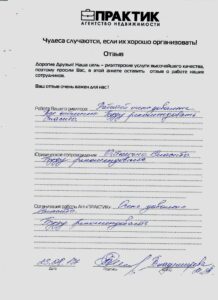 ПРАКТИК
АГЕНТСТВО НЕДВИЖИМОСТИ
Чудеса случаются, если их хорошо организовать!
Отзыв
Дорогие Друзья! Наша цель - риэлторские услуги высочайшего качества,
поэтому просим Вас, в этой анкете оставить отзыв о работе наших
сотрудников.
Ваш отзыв очень важен для нас!
Работа Вашего риэлтора: Работой очень довольны
Буду рекомендовать
Спасибо.
Юридическое сопровождение: Отлично Спасибо.
Буду рекомендовать
Организация работы АН «ПРАКТИК»: Очень довольны
Спасибо.
Буду рекомендовать
Дата
Подпись